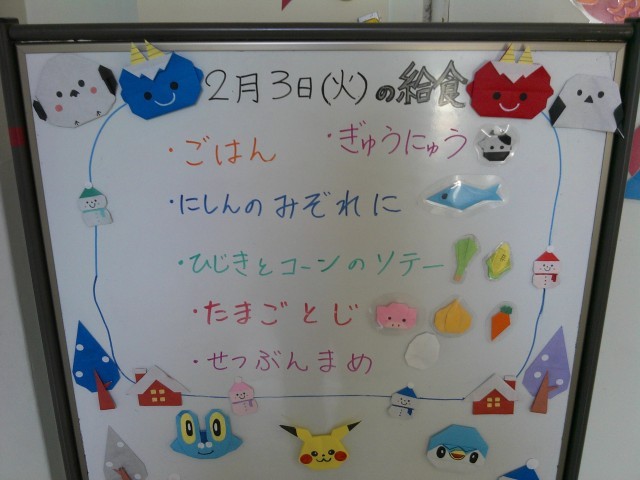 2月3日(火)の給食
・ごはん ・ぎゅうにゅう
・にしんのみぞれに
・ひじきとコーンのソテー
・たまごとじ
・せつぶんまめ